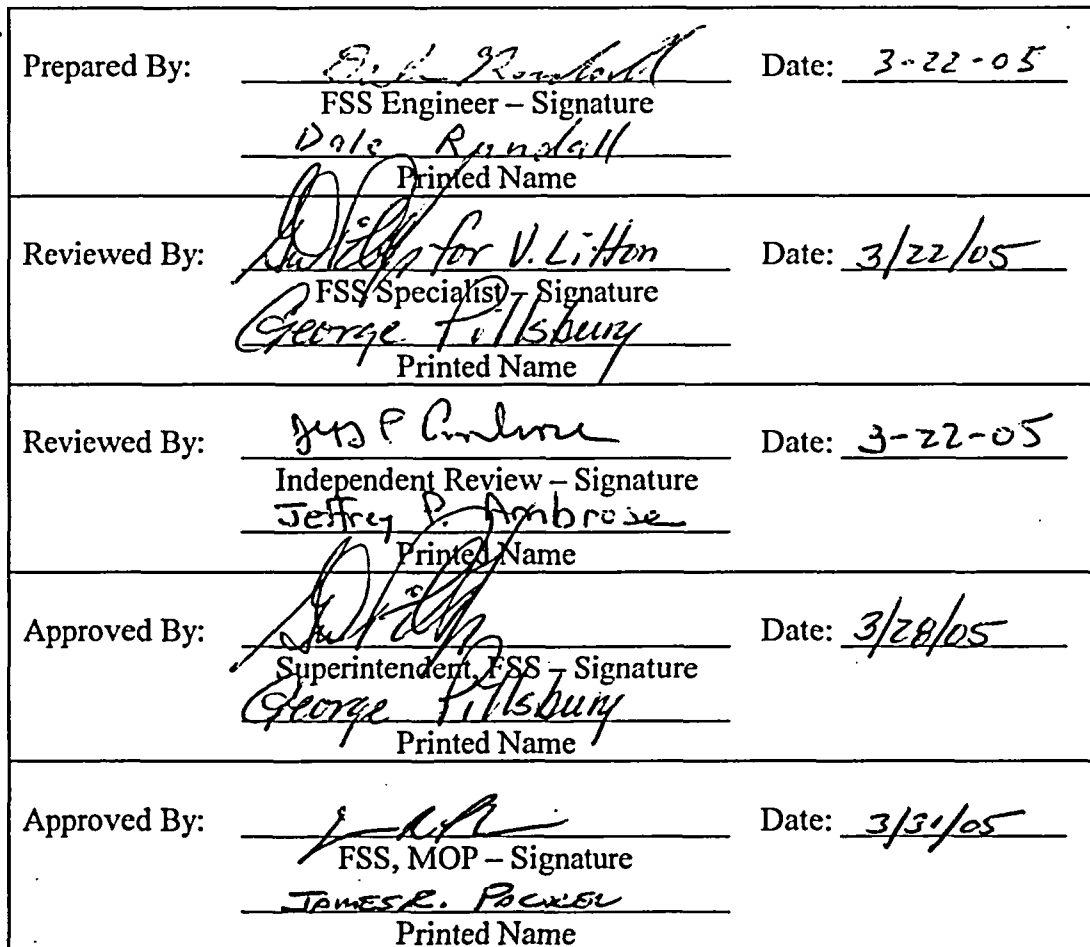 Prepared By: Date: 3-22-05
FSS Engineer – Signature
Dale Randall
Printed Name
Reviewed By: for V. Litton Date: 3/22/05
FSS Specialist – Signature
George Pillsbury
Printed Name
Reviewed By: Date: 3-22-05
Independent Review – Signature
Jeffrey P. Ambrose
Printed Name
Approved By: Date: 3/28/05
Superintendent, FSS – Signature
George Pillsbury
Printed Name
Approved By: Date: 3/31/05
FSS, MOP – Signature
James R.
Printed Name